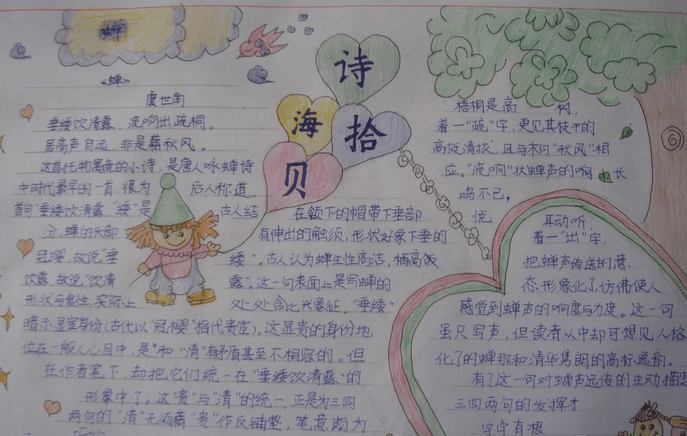 蝉
诗
海
拾
贝
《蝉》
虞世南
垂緌饮清露，流响出疏桐。
居高声自远，非是藉秋风。
这首托物寓意的小诗，是唐人咏蝉诗
中时代最早的一首，很为 后人称道
首句"垂緌饮清露，"緌"是 古人结
在颔下的帽带下垂部
分，蝉的头部 有伸出的触须，形状好象下垂的
緌"。古人认为蝉生性高洁，栖高饮
饮露，故说"饮清 露"。这一句表面上是写蝉的
形状与食性，实际上 处处含比兴象征，"垂緌"
暗示显宦身份(古代以"冠缨"指代贵宦)。这显贵的身份地
位在一般人心目中，是和"清"有矛盾甚至不相容的。但
在作者笔下，却把它们统一在"垂緌饮清露"的
形象中了。这"贵"与"清"的统一，正是为三四
两句的"清"无须藉"贵"作反铺垫，笔意颇为
梧桐是高 树，
着一"疏"字，更见其枝干的
高挺清拔，且与末句"秋风"相
应。"流响"状蝉声的 长
鸣不已，
悦 耳动听，
着一"出"字，
把蝉声传送的意
态形象化了，仿佛使人
感觉到蝉声的响度与力度。这一句
虽只写声，但读者从中却可想见人格
化了的蝉那和清华隽朗的高标逸韵。
有了这一句对蝉声远传的生动描
三四两句的发挥才
字字有根